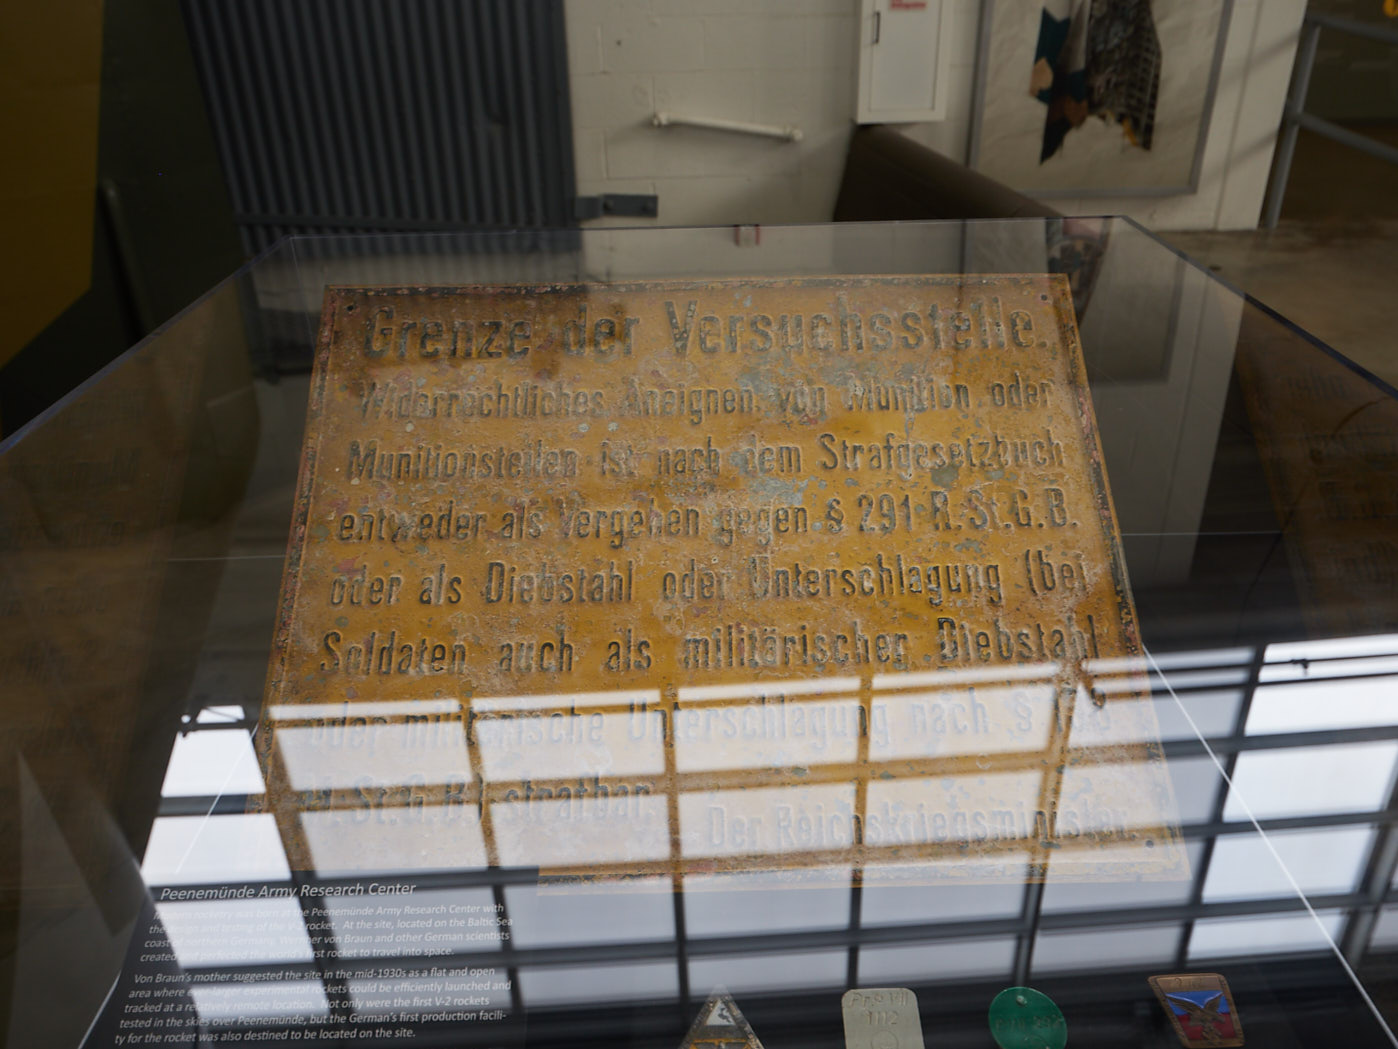 Grenze der Versuchsstelle.
Widerrechtliches Aneignen von Munition oder
Munitionsteilen ist nach dem Strafgesetzbuch
entweder als Vergehen gegen § 291 R.St.G.B.
oder als Diebstahl oder Unterschlagung (bei
Soldaten auch als militärischer Diebstahl
oder militärische Unterschlagung nach §
M.St.G.B.) strafbar.
Der Reichskriegsminister.
Peenemünde Army Research Center
Modern rocketry was born at the Peenemünde Army Research Center with
the design and testing of the V-2 rocket. At the site, located on the Baltic Sea
coast of northern Germany, Wernher von Braun and other German scientists
created and perfected the world's first rocket to travel into space.
Von Braun's mother suggested the site in the mid-1930s as a flat and open
area where ever-larger experimental rockets could be efficiently launched and
tracked at a relatively remote location. Not only were the first V-2 rockets
tested in the skies over Peenemünde, but the German's first production facili-
ty for the rocket was also destined to be located on the site.
1112